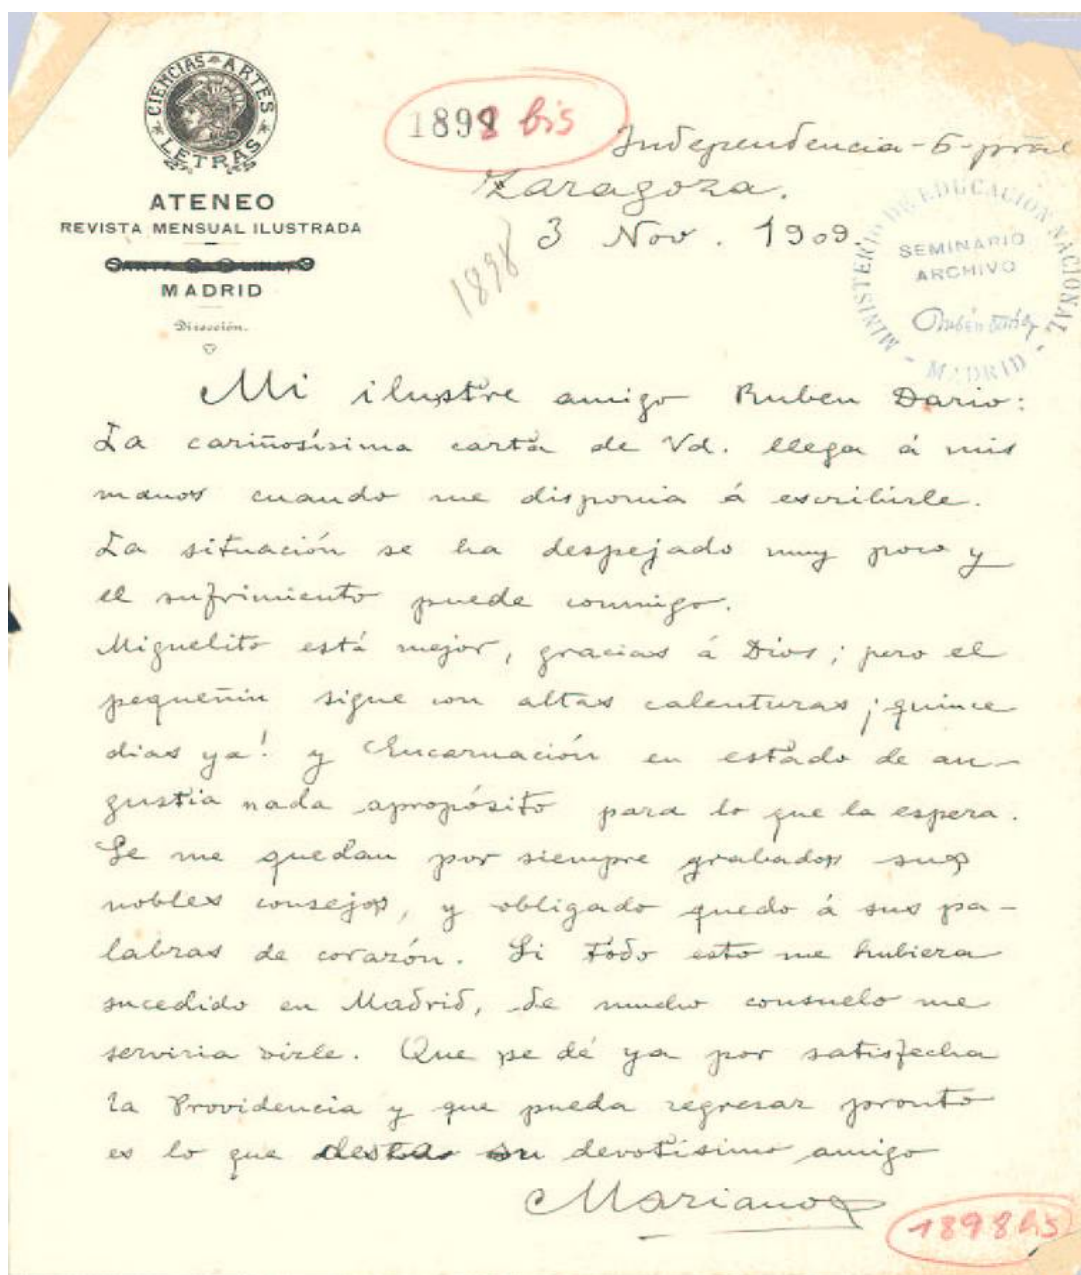 CIENCIAS * ARTES * LETRAS *
ATENEO
REVISTA MENSUAL ILUSTRADA
MADRID
Dirección.
1898 bis
Independencia-6-pral
Zaragoza.
3 Nov. 1909.
1898
MINISTERIO DE EDUCACION NACIONAL - MADRID -
SEMINARIO
ARCHIVO
Rubén Darío
Mi ilustre amigo Ruben Dario:
La cariñosísima carta de Vd. llega á mis
manos cuando me disponia á escribirle.
La situación se ha despejado muy poco y
el sufrimiento puede conmigo.
Miguelito está mejor, gracias á Dios; pero el
pequeñin sigue con altas calenturas ¡quince
dias ya! y Encarnación en estado de an-
gustia nada apropósito para lo que la espera.
Se me quedan por siempre grabados sus
nobles consejos, y obligado quedo á sus pa-
labras de corazón. Si todo esto me hubiera
sucedido en Madrid, de mucho consuelo me
serviria oirle. Que se dé ya por satisfecha
la Providencia y que pueda regresar pronto
es lo que desea su devotisimo amigo
Mariano
1898 bis